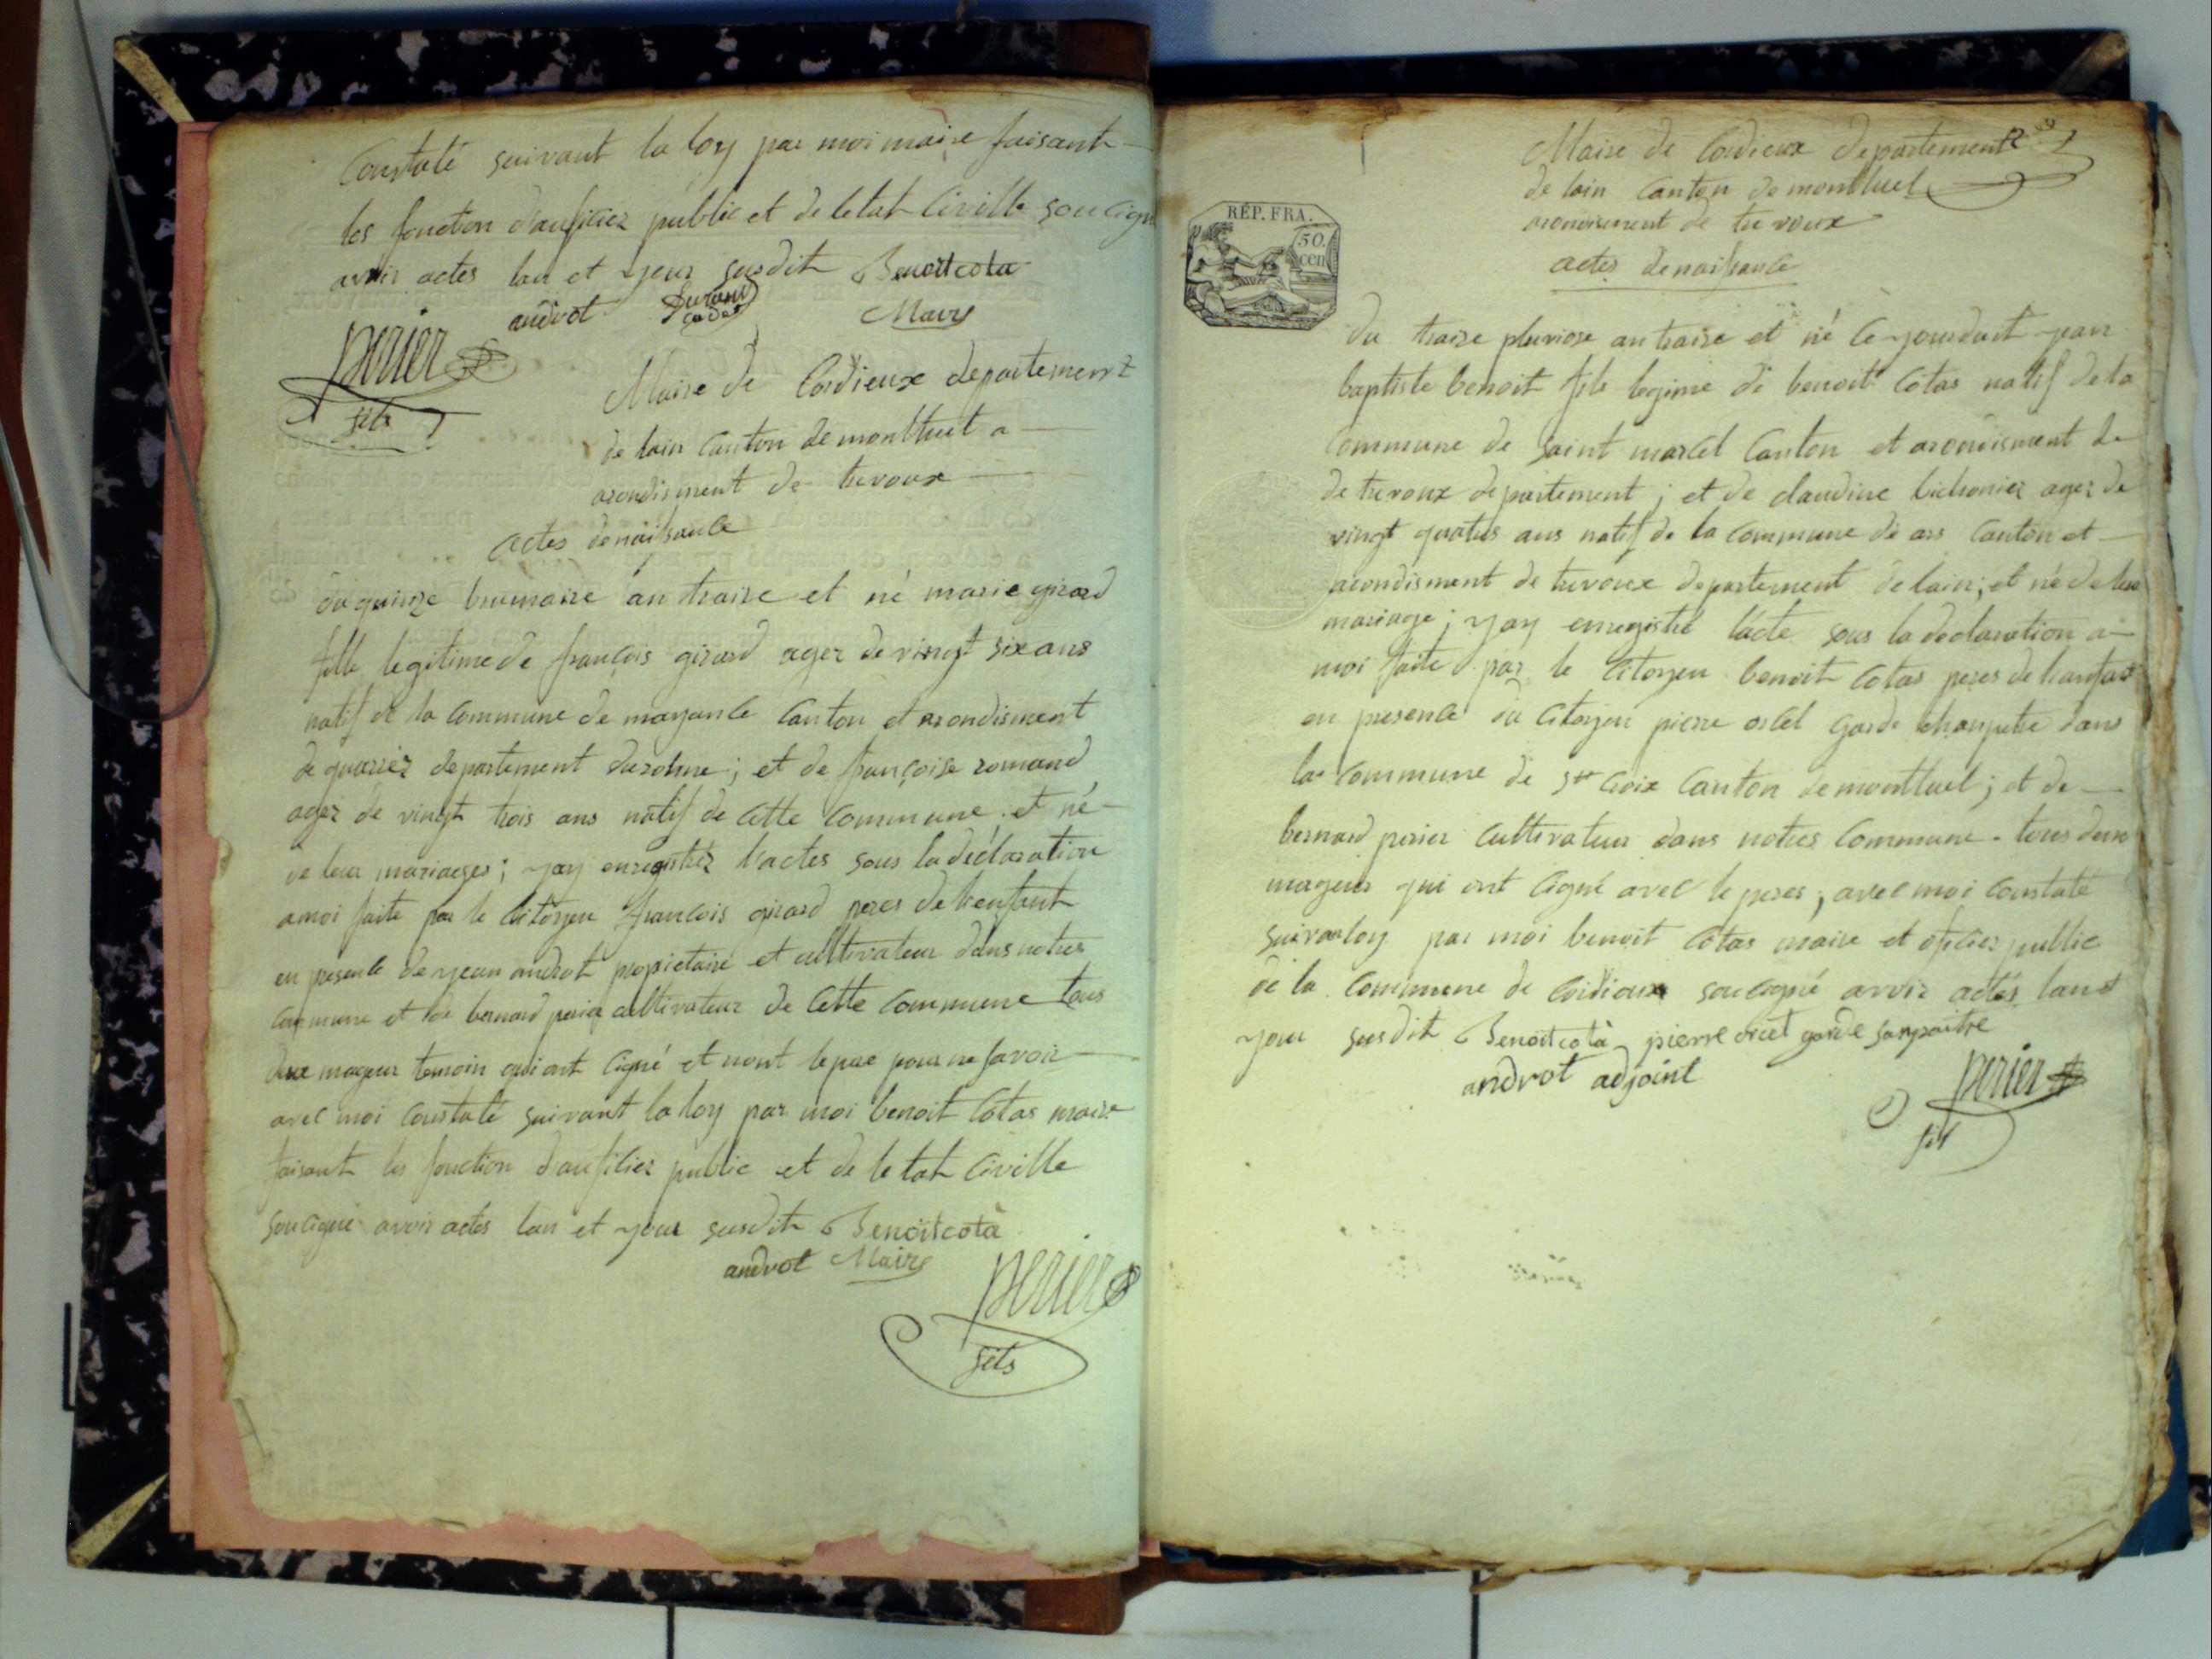 Constaté suivant la loy par moi maire faisant
les fonction d'auficiez public et de letat Civille soucigné
avoir actes lan et your susdit Benoitcota
androt Durand Mair
cadet
perier
fils
Maire de Cordieux departement
de lain Canton de montluel a
arondisment de trevoux
actes de naissance
du quinze brumaire an traize et né marie girard
fille legitime de françois girard agez de vingt six ans
natif de la Commune de mayance Canton et arondisment
de quariez departement durohne ; et de françoise romand
agez de vingt trois ans natif de Cette Commune et né
de leur mariages ; yay enregistrez l'actes sous la déclaration
amoi faite par le Citoyen francois girard peres de lienfant
en presence de yean androt propietaire et cultivateur dans notres
Commune et de bernard perier cultivateur de Cette Commune tous
deux mageur temoin qui ont cigné et nont le pae pour ne savoir
avec moi Constaté suivant la loy par moi benoit Cotas maire
faisant les fonction d'auficiez public et de letat Civille
soucigné avoir actes lan et your susdit Benoitcota
androt Mair
perier
fils
Maire de Cordieux departement
de lain Canton de montluel
arondisment de trevoux
actes de naissance
RÉP. FRA.
50
cen
du traize pluviose an traize et né le yourduit yean
baptiste benoit fils legime de benoit Cotas natif de la
Commune de saint marcel Canton et arondisment de
de trevoux departement ; et de claudine bichonier agez de
vingt quatres ans natif de la Commune de ars Canton et
arondisment de trevoux departement de lain ; et né de leur
mariage ; yay enregistré lacte sous la declaration a
moi faite par le Citoyen benoit Cotas peres de lianfant
en presence du Citoyen pierre orcel garde chanpette dans
la Commune de ste Croix Canton de montluel ; et de
bernard perier Cultivateur dans notres Commune tous deux
mageur qui ont Cigné avec le peres ; avec moi Constaté
suivanloy par moi benoit Cotas maire et oficiez public
de la Commune de Cordieux soucigné avoir actés lan et
your susdit Benoitcotà pierre orcet garde sanpaitre
androt adjoint
perier
fils